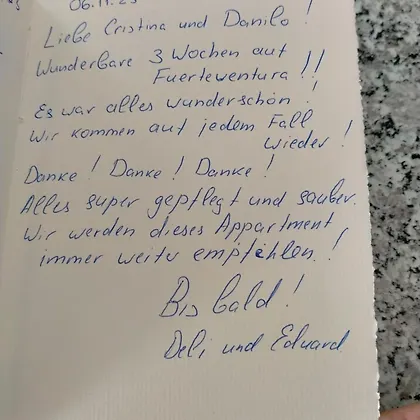 06.11.23
Liebe Cristina und Danilo!
Wunderbare 3 Wochen auf
Fuerteventura!!
Es war alles wunderschön!
Wir kommen auf jedem Fall
wieder!
Danke! Danke! Danke!
Alles super gepflegt und sauber.
Wir werden dieses Appartment
immer weiter empfehlen!
Bis bald!
Deli und Eduard